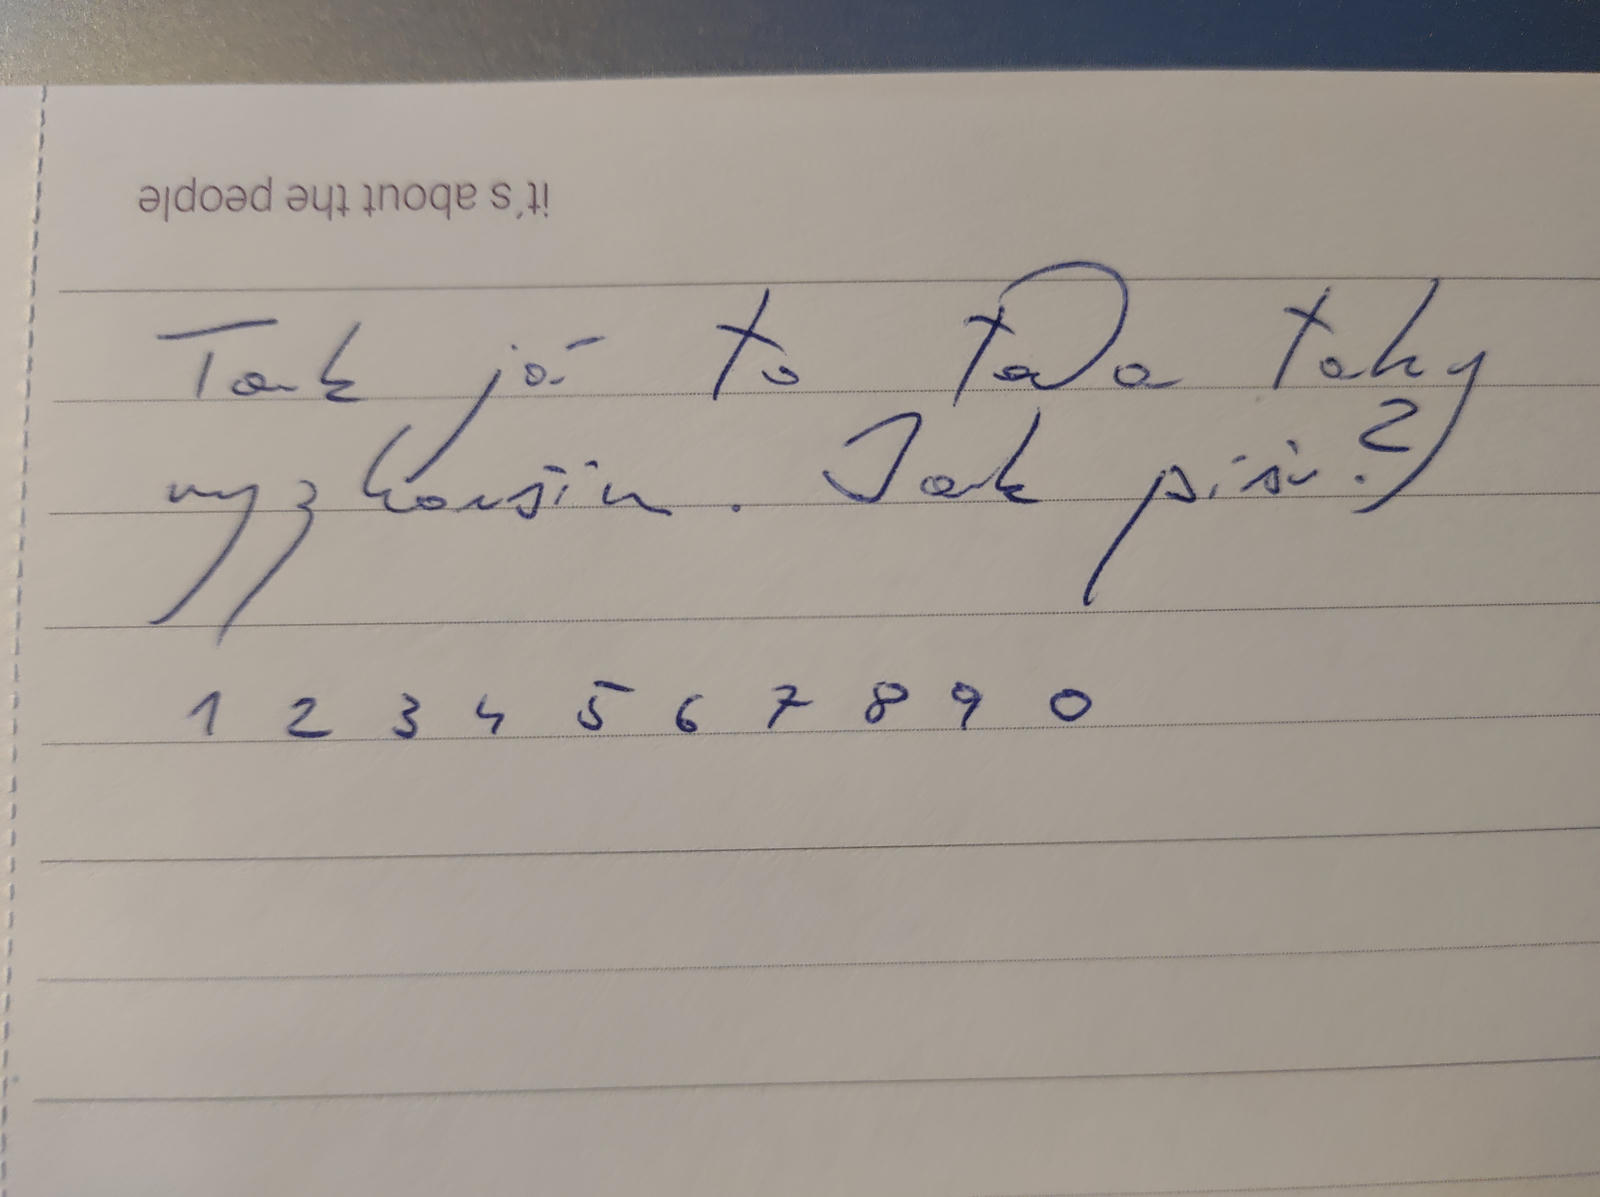 it's about the people
Tak já to tada taky
vyzkouším. Jak píšu?
1 2 3 4 5 6 7 8 9 0